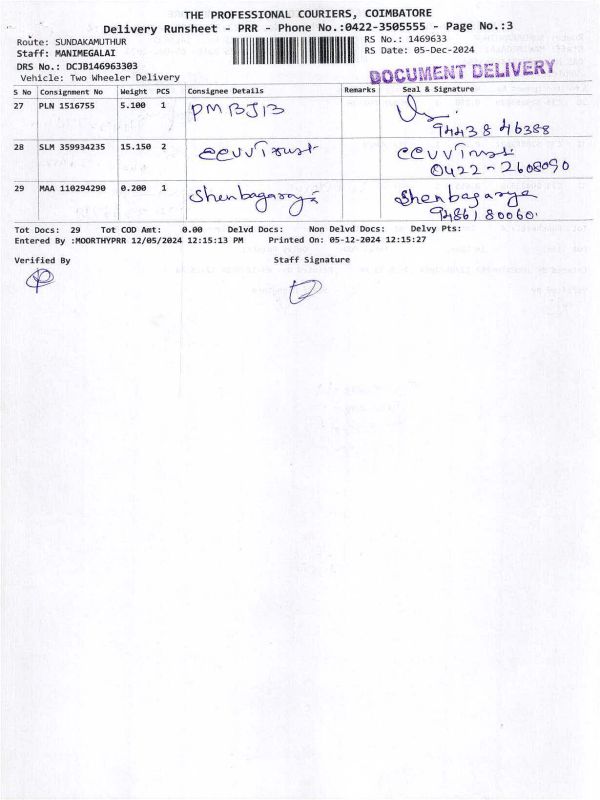 THE PROFESSIONAL COURIERS, COIMBATORE
Delivery Runsheet - PRR - Phone No.:0422-3505555 - Page No.:3
Route: SUNDAKAMUTHUR RS No.: 1469633
Staff: MANIMEGALAI RS Date: 05-Dec-2024
DRS No.: DCJB146963303
Vehicle: Two Wheeler Delivery DOCUMENT DELIVERY
S No Consignment No Weight PCS Consignee Details Remarks Seal & Signature
27 PLN 1516755 5.100 1 PMBJB
94438 46388
28 SLM 359934235 15.150 2 CCUVTrust CCUVTrust
0422-2608090
29 MAA 110294290 0.200 1 Shenbagaraya Shenbagaraya
94861 80060.
Tot Docs: 29 Tot COD Amt: 0.00 Delvd Docs: Non Delvd Docs: Delvy Pts:
Entered By :MOORTHYPRR 12/05/2024 12:15:13 PM Printed On: 05-12-2024 12:15:27
Verified By Staff Signature